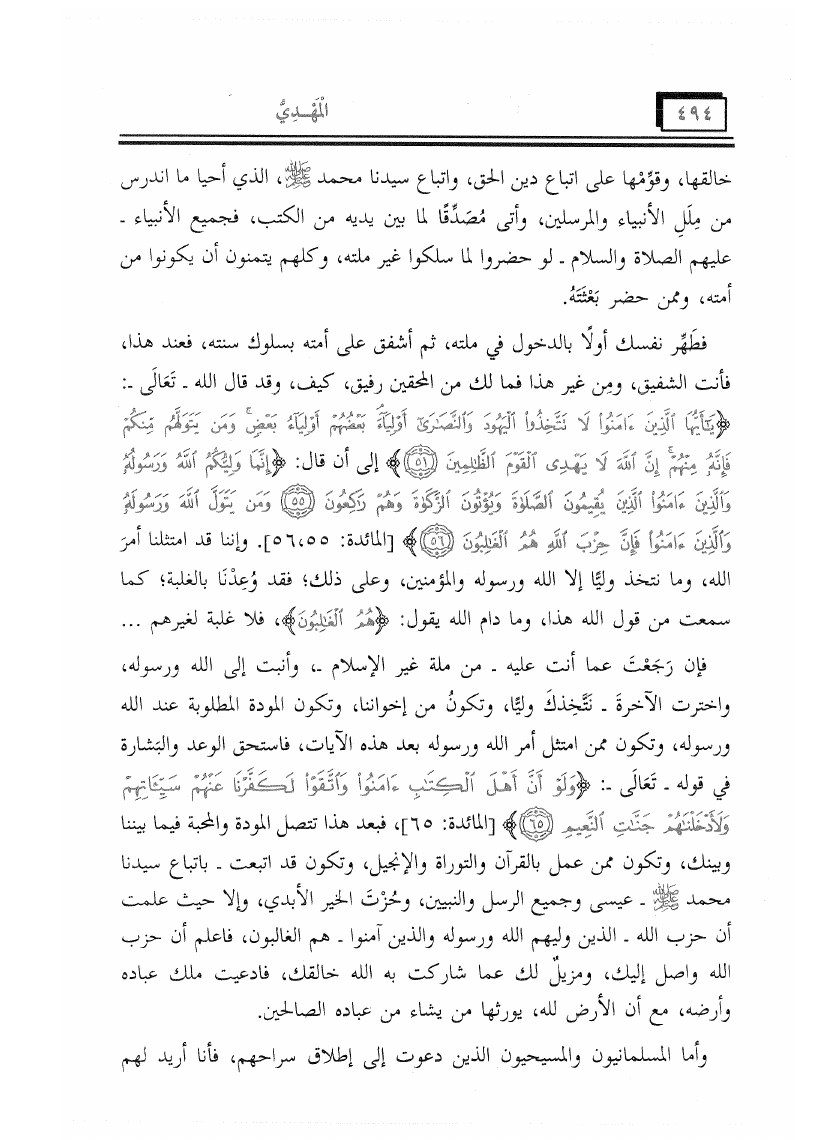 ٤٩٤
الْمَهْـدِيُّ
خالقها، وقوِّمْها على اتباع دين الحق، واتباع سيدنا محمد ﷺ، الذي أحيا ما اندرس
من مِلَلِ الأنبياء والمرسلين، وأتى مُصَدِّقًا لما بين يديه من الكتب، فجميع الأنبياء ـ
عليهم الصلاة والسلام ـ لو حضروا لما سلكوا غير ملته، وكلهم يتمنون أن يكونوا من
أمته، وممن حضر بَعْثَتَهُ.
فطَهِّر نفسك أولًا بالدخول في ملته، ثم أشفق على أمته بسلوك سنته، فعند هذا،
فأنت الشفيق، ومِن غير هذا فما لك من المحقين رفيق، كيف، وقد قال الله ـ تَعَالَى ـ:
﴿يَـٰٓأَيُّهَا ٱلَّذِينَ ءَامَنُوا۟ لَا تَتَّخِذُوا۟ ٱلْيَهُودَ وَٱلنَّصَـٰرَىٰٓ أَوْلِيَآءَ ۘ بَعْضُهُمْ أَوْلِيَآءُ بَعْضٍ ۚ وَمَن يَتَوَلَّهُم مِّنكُمْ
فَإِنَّهُۥ مِنْهُمْ ۗ إِنَّ ٱللَّهَ لَا يَهْدِى ٱلْقَوْمَ ٱلظَّـٰلِمِينَ ٥١﴾ إلى أن قال: ﴿إِنَّمَا وَلِيُّكُمُ ٱللَّهُ وَرَسُولُهُۥ
وَٱلَّذِينَ ءَامَنُوا۟ ٱلَّذِينَ يُقِيمُونَ ٱلصَّلَوٰةَ وَيُؤْتُونَ ٱلزَّكَوٰةَ وَهُمْ رَٰكِعُونَ ٥٥ وَمَن يَتَوَلَّ ٱللَّهَ وَرَسُولَهُۥ
وَٱلَّذِينَ ءَامَنُوا۟ فَإِنَّ حِزْبَ ٱللَّهِ هُمُ ٱلْغَـٰلِبُونَ ٥٦﴾ [المائدة: ٥٥، ٥٦]. وإننا قد امتثلنا أمرَ
الله، وما نتخذ وليًّا إلا الله ورسوله والمؤمنين، وعلى ذلك؛ فقد وُعِدْنَا بالغلبة؛ كما
سمعت من قول الله هذا، وما دام الله يقول: ﴿هُمُ ٱلْغَـٰلِبُونَ﴾، فلا غلبة لغيرهم ...
فإن رَجَعْتَ عما أنت عليه ـ من ملة غير الإسلام ـ، وأنبت إلى الله ورسوله،
واخترت الآخرةَ ـ نَتَّخِذكَ وليًّا، وتكونُ من إخواننا، وتكون المودة المطلوبة عند الله
ورسوله، وتكون ممن امتثل أمر الله ورسوله بعد هذه الآيات، فاستحق الوعد والبَشارة
في قوله ـ تَعَالَى ـ: ﴿وَلَوْ أَنَّ أَهْلَ ٱلْكِتَـٰبِ ءَامَنُوا۟ وَٱتَّقَوْا۟ لَكَفَّرْنَا عَنْهُمْ سَيِّـَٔاتِهِمْ
وَلَأَدْخَلْنَـٰهُمْ جَنَّـٰتِ ٱلنَّعِيمِ ٦٥﴾ [المائدة: ٦٥]، فبعد هذا تتصل المودة والمحبة فيما بيننا
وبينك، وتكون ممن عمل بالقرآن والتوراة والإنجيل، وتكون قد اتبعت ـ باتباع سيدنا
محمد ﷺ ـ عيسى وجميع الرسل والنبيين، وحُزْتَ الخير الأبدي، وإلا حيث علمت
أن حزب الله ـ الذين وليهم الله ورسوله والذين آمنوا ـ هم الغالبون، فاعلم أن حزب
الله واصل إليك، ومزيلٌ لك عما شاركت به الله خالقك، فادعيت ملك عباده
وأرضه، مع أن الأرض لله، يورثها من يشاء من عباده الصالحين.
وأما المسلمانيون والمسيحيون الذين دعوت إلى إطلاق سراحهم، فأنا أريد لهم